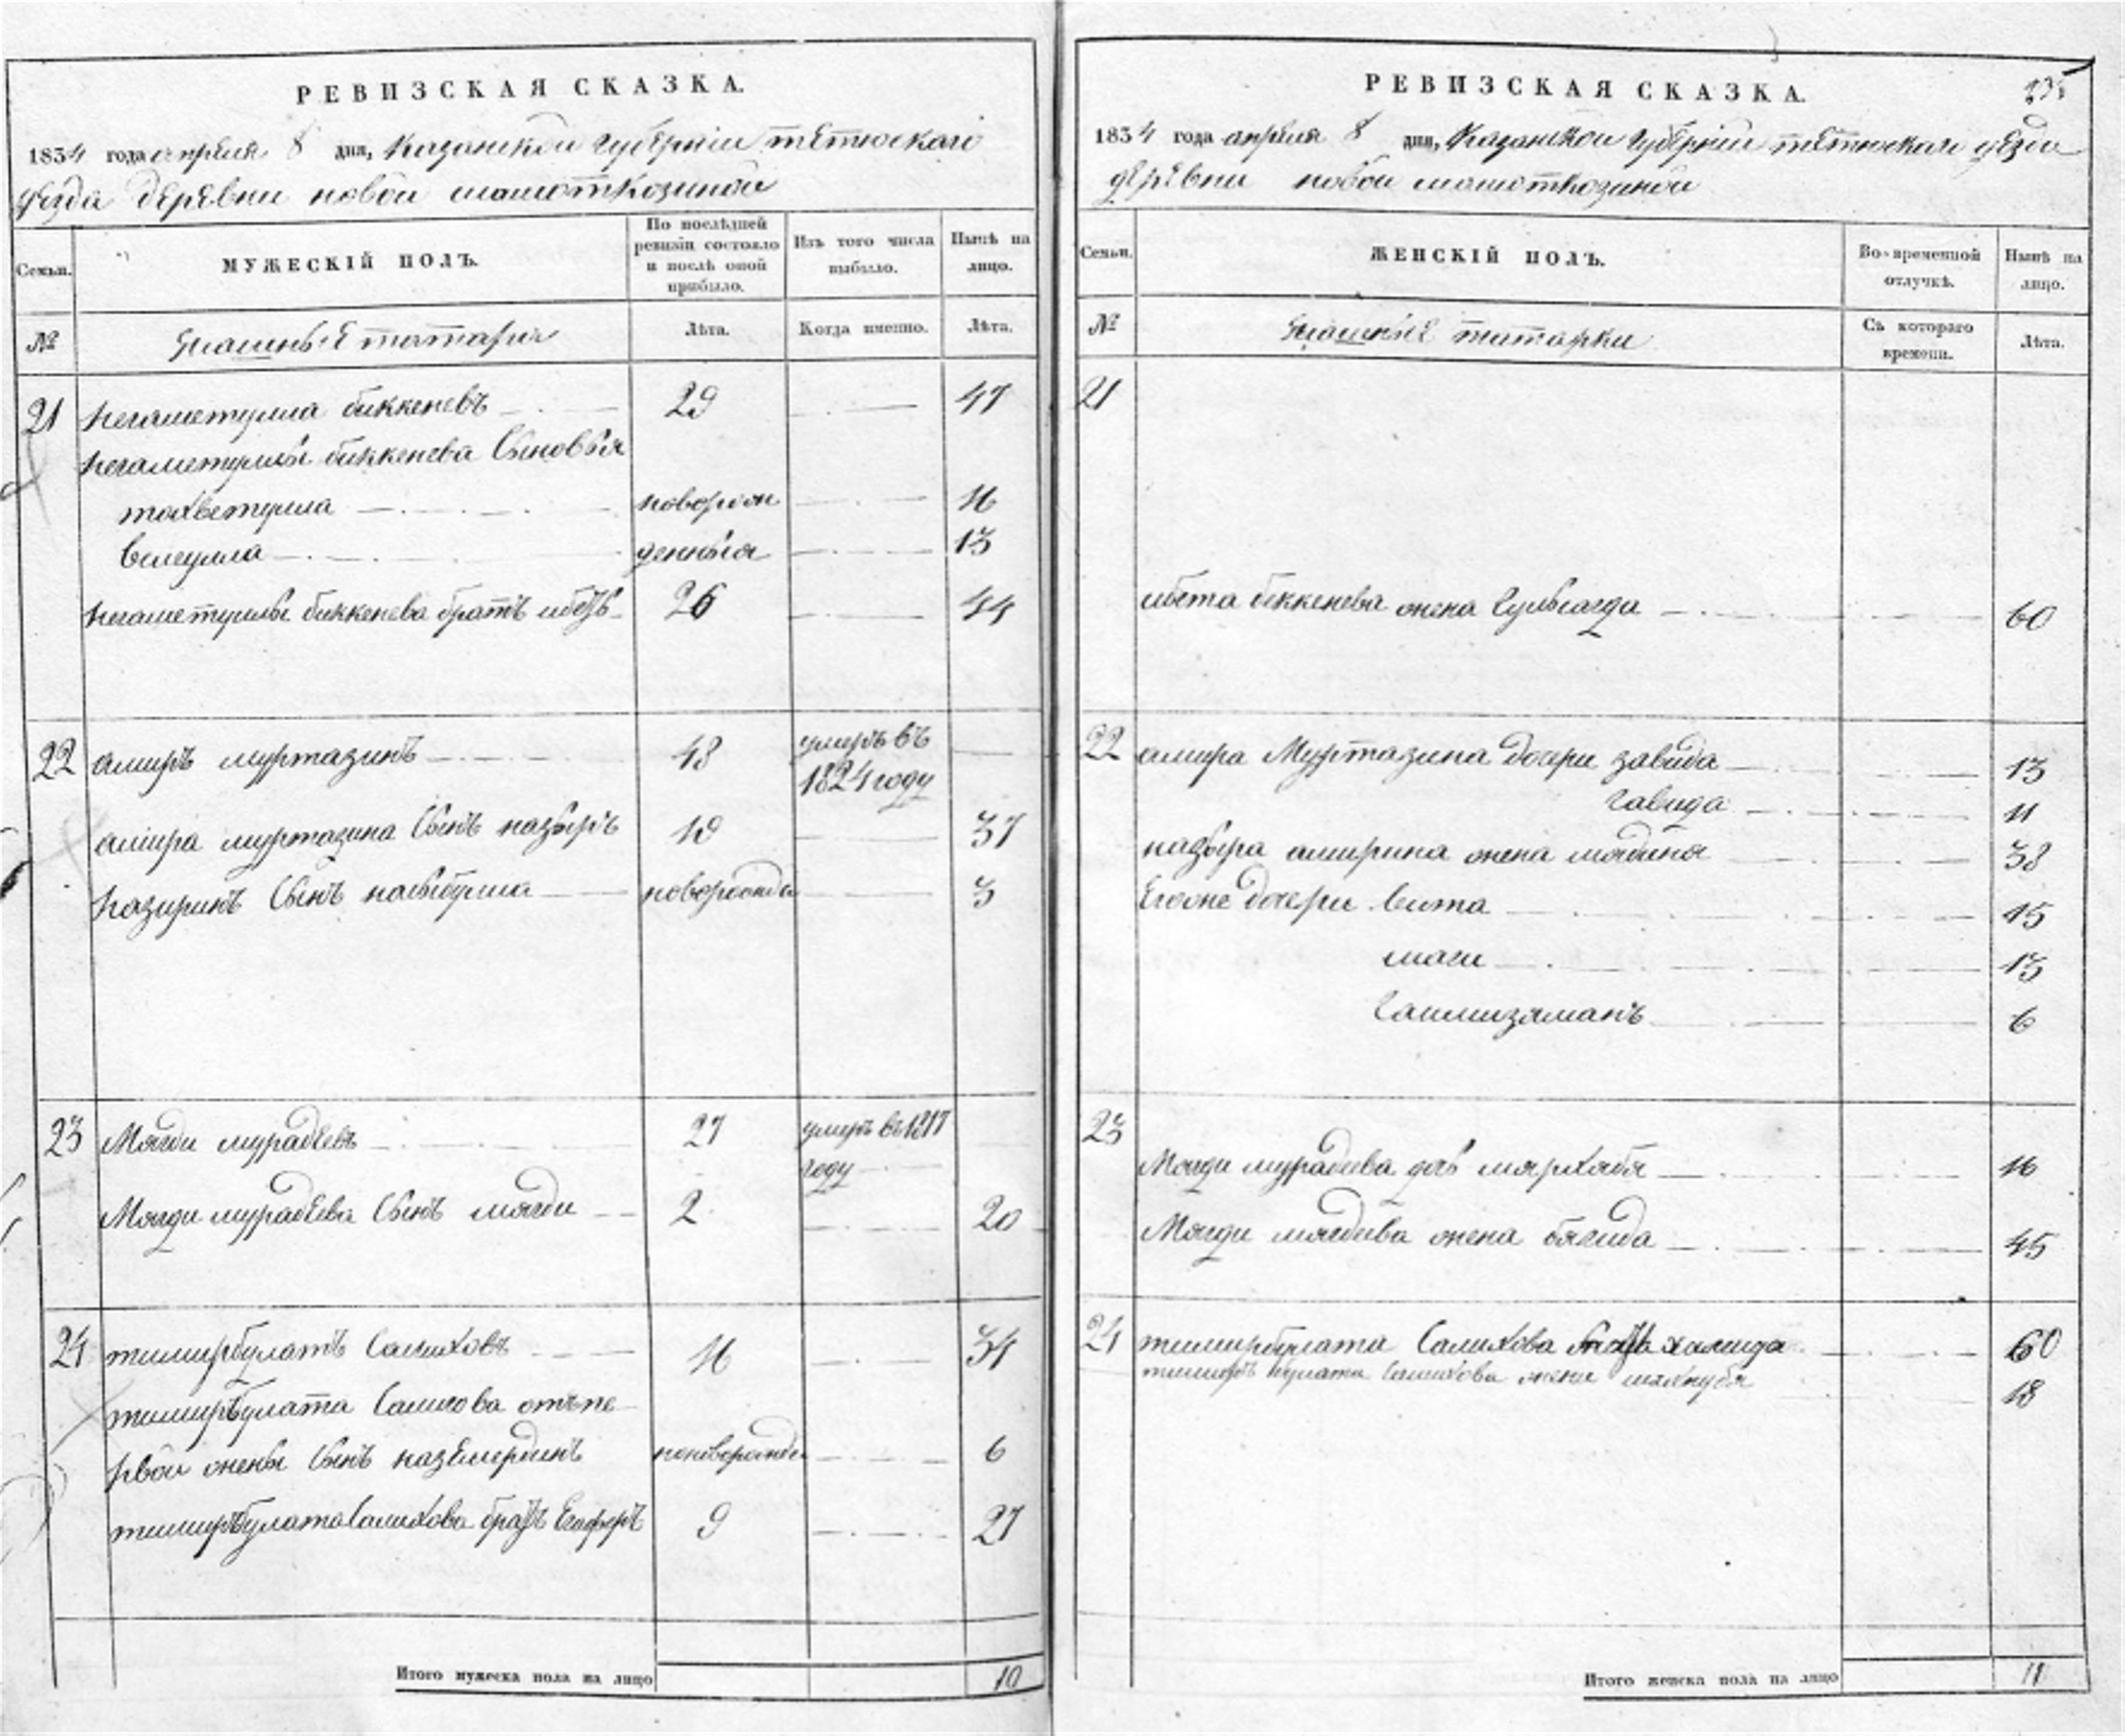 РЕВИЗСКАЯ СКАЗКА.
1834 года апреля 8 дня, Казанской губернии тетюскаго
уезда деревни новой
Семьи.
МУЖЕСКІЙ ПОЛЪ.
По послѣдней ревизіи состояло и послѣ оной прибыло.
Изъ того числа выбыло.
Нынѣ на лицо.
№
татары
Лѣта.
Когда именно.
Лѣта.
21 негаметулла биккеневъ 29 47
негаметуллы биккенева сыновья
тохветулла новорож 16
велеулла денныя 13
негаметуллы биккенева братъ 26 44
22 амиръ муртазинъ 48 умеръ въ 1824 году
амира муртазина сынъ назыръ 19 37
назиринъ сынъ насыбулла 3
23 Мягди мурадѣевъ 27 умеръ въ 1817 году
Мягди мурадѣева сынъ мягди 2 20
24 тимирбулатъ Салиховъ 16 34
тимирбулата Салихова отъ пе
рвой жены сынъ 6
тимирбулата Салихова братъ 9 27
Итого мужеска пола на лицо 10
РЕВИЗСКАЯ СКАЗКА.
1834 года апреля 8 дня, Казанской губернии тетюскаго уезда
деревни новой
Семьи.
ЖЕНСКІЙ ПОЛЪ.
Во временной отлучкѣ.
Нынѣ на лицо.
№
татарки
Съ котораго времени.
Лѣта.
21
биккенева жена 60
22 амира Муртазина дочери завида 13
гавида 11
назыра амирина жена мядина 38
Егоже дочери бита 15
маги 13
6
23
Мягди мурадеева дочь 16
Мягди мягдиева жена бягида 45
24 тимирбулата Салихова халида 60
тимирбулата Салихова жена 18
Итого женска пола на лицо 11